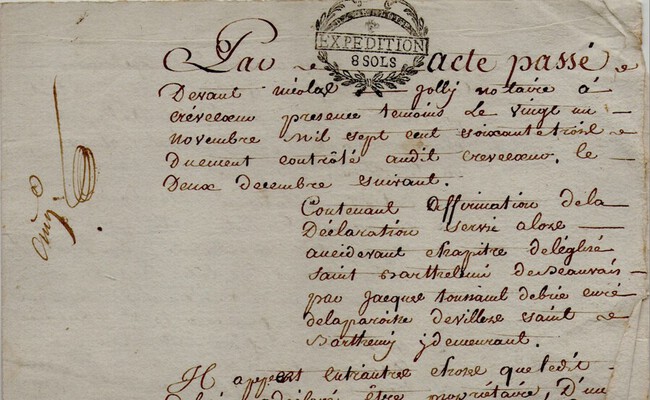 EXPEDITION
8 SOLS
Par acte passé
Devant nicolas jolly notaire á
crévecoeur presence temoins Le vingt un
novembre Mil sept cent soixante trois
Duement contrôlé audit crevecoeur, le
Deux decembre suivant.
Contenant affirmation dela
Déclaration servi alors
auci devant chapitre deléglise
saint Barthelemi de Beauvais
par jacques toussaint debrie curé
delaparoisse devillers saint
Barthemy ydemeurant.
Il appert entrautre chose queledit
être propriétaire, D'un